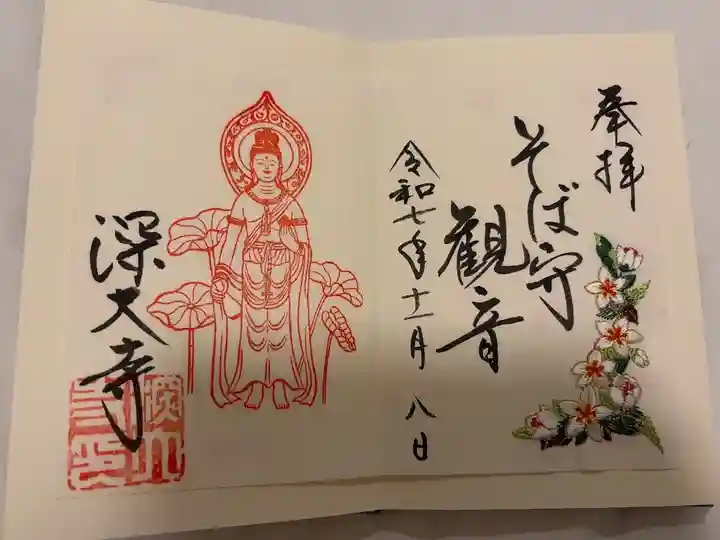 奉拝
そば守
観音
令和七年十一月八日
深大寺